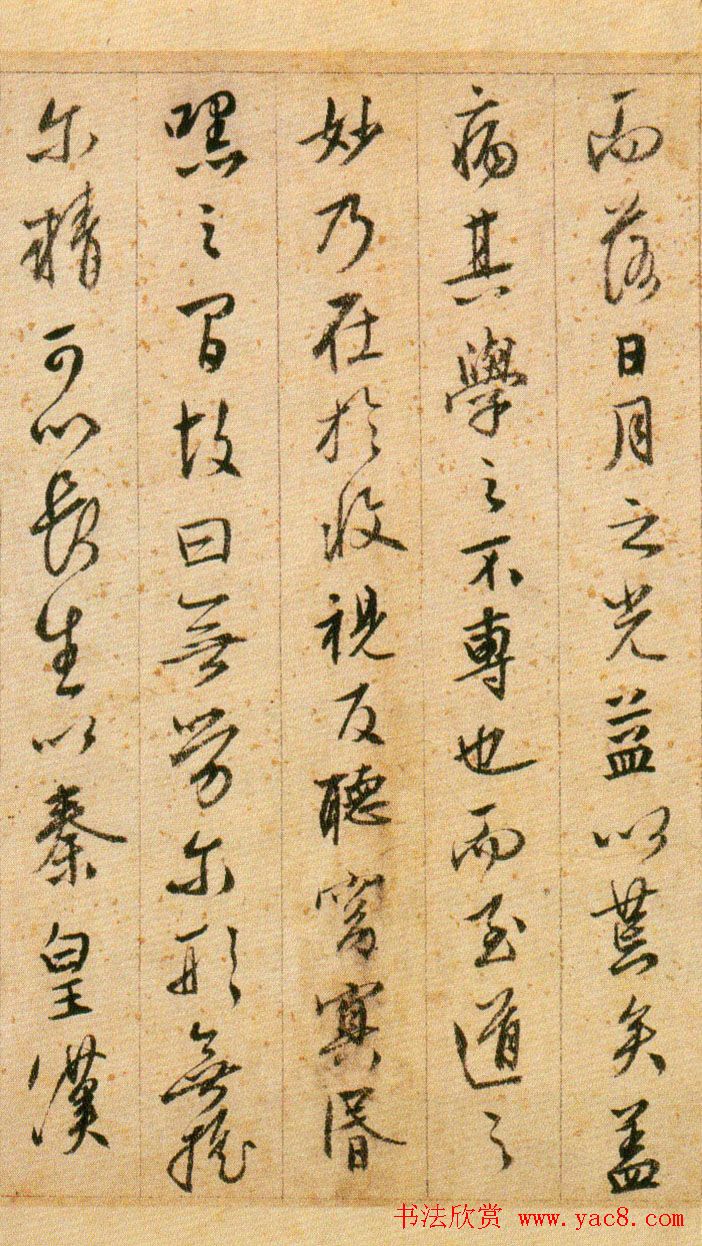 而落日月之光益以荒矣盖
病其學之不專也而至道之
妙乃在於收視反聽窈冥昏
嘿之間故曰無勞尓形無搖
尓精可以長生以秦皇漢
书法欣赏 www.yac8.com